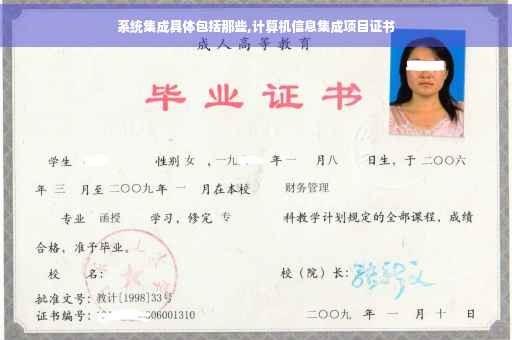 系统集成具体包括那些,计算机信息集成项目证书
成人高等教育
毕业证书
学生 性别 女 ,一九 年 一 月八 日生，于 二〇〇六
年 三 月至 二〇〇九 年 一 月在本校 财务管理
专业 函授 学习，修完 专 科教学计划规定的全部课程，成绩
合格，准予毕业。
校 名： 校（院）长：
批准文号：教计[1998]33号
证书编号： 06001310 二〇〇九 年 一 月 十 日